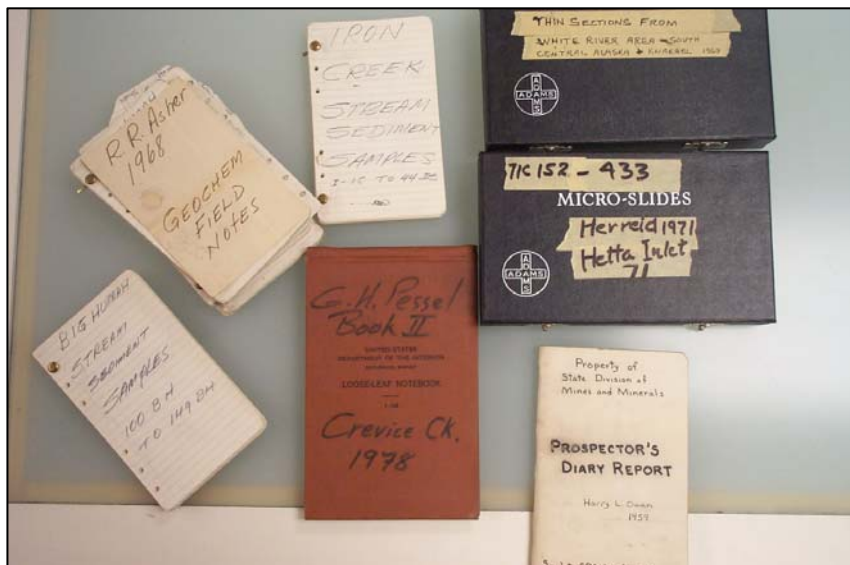 R.R. Asher
1968
GEOCHEM
FIELD
NOTES
IRON
CREEK
STREAM
SEDIMENT
SAMPLES
THIN SECTIONS FROM
WHITE RIVER AREA SOUTH
CENTRAL ALASKA
ADAMS
ADAMS
71C 152 - 433
MICRO-SLIDES
Herreid 1971
Hetta Inlet
71
ADAMS
ADAMS
BIG HURRAH
STREAM
SEDIMENT
SAMPLES
100 BH
TO 149 BH
G.H. Pessel
Book II
UNITED STATES
DEPARTMENT OF THE INTERIOR
LOOSE-LEAF NOTEBOOK
Crevice Ck.
1978
Property of
State Division of
Mines and Minerals
PROSPECTOR'S
DIARY REPORT
Harry L. Owen
1959